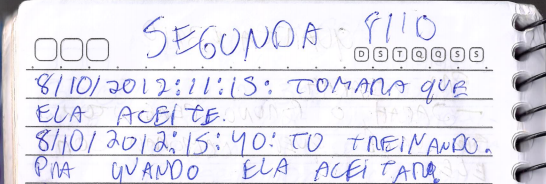 SEGUNDA 8/10
D S T Q Q S S
8/10/2012:11:15: TOMARA QUE
ELA ACEITE.
8/10/2012:15:40: TO TREINANDO.
PRA QUANDO ELA ACEITAR.